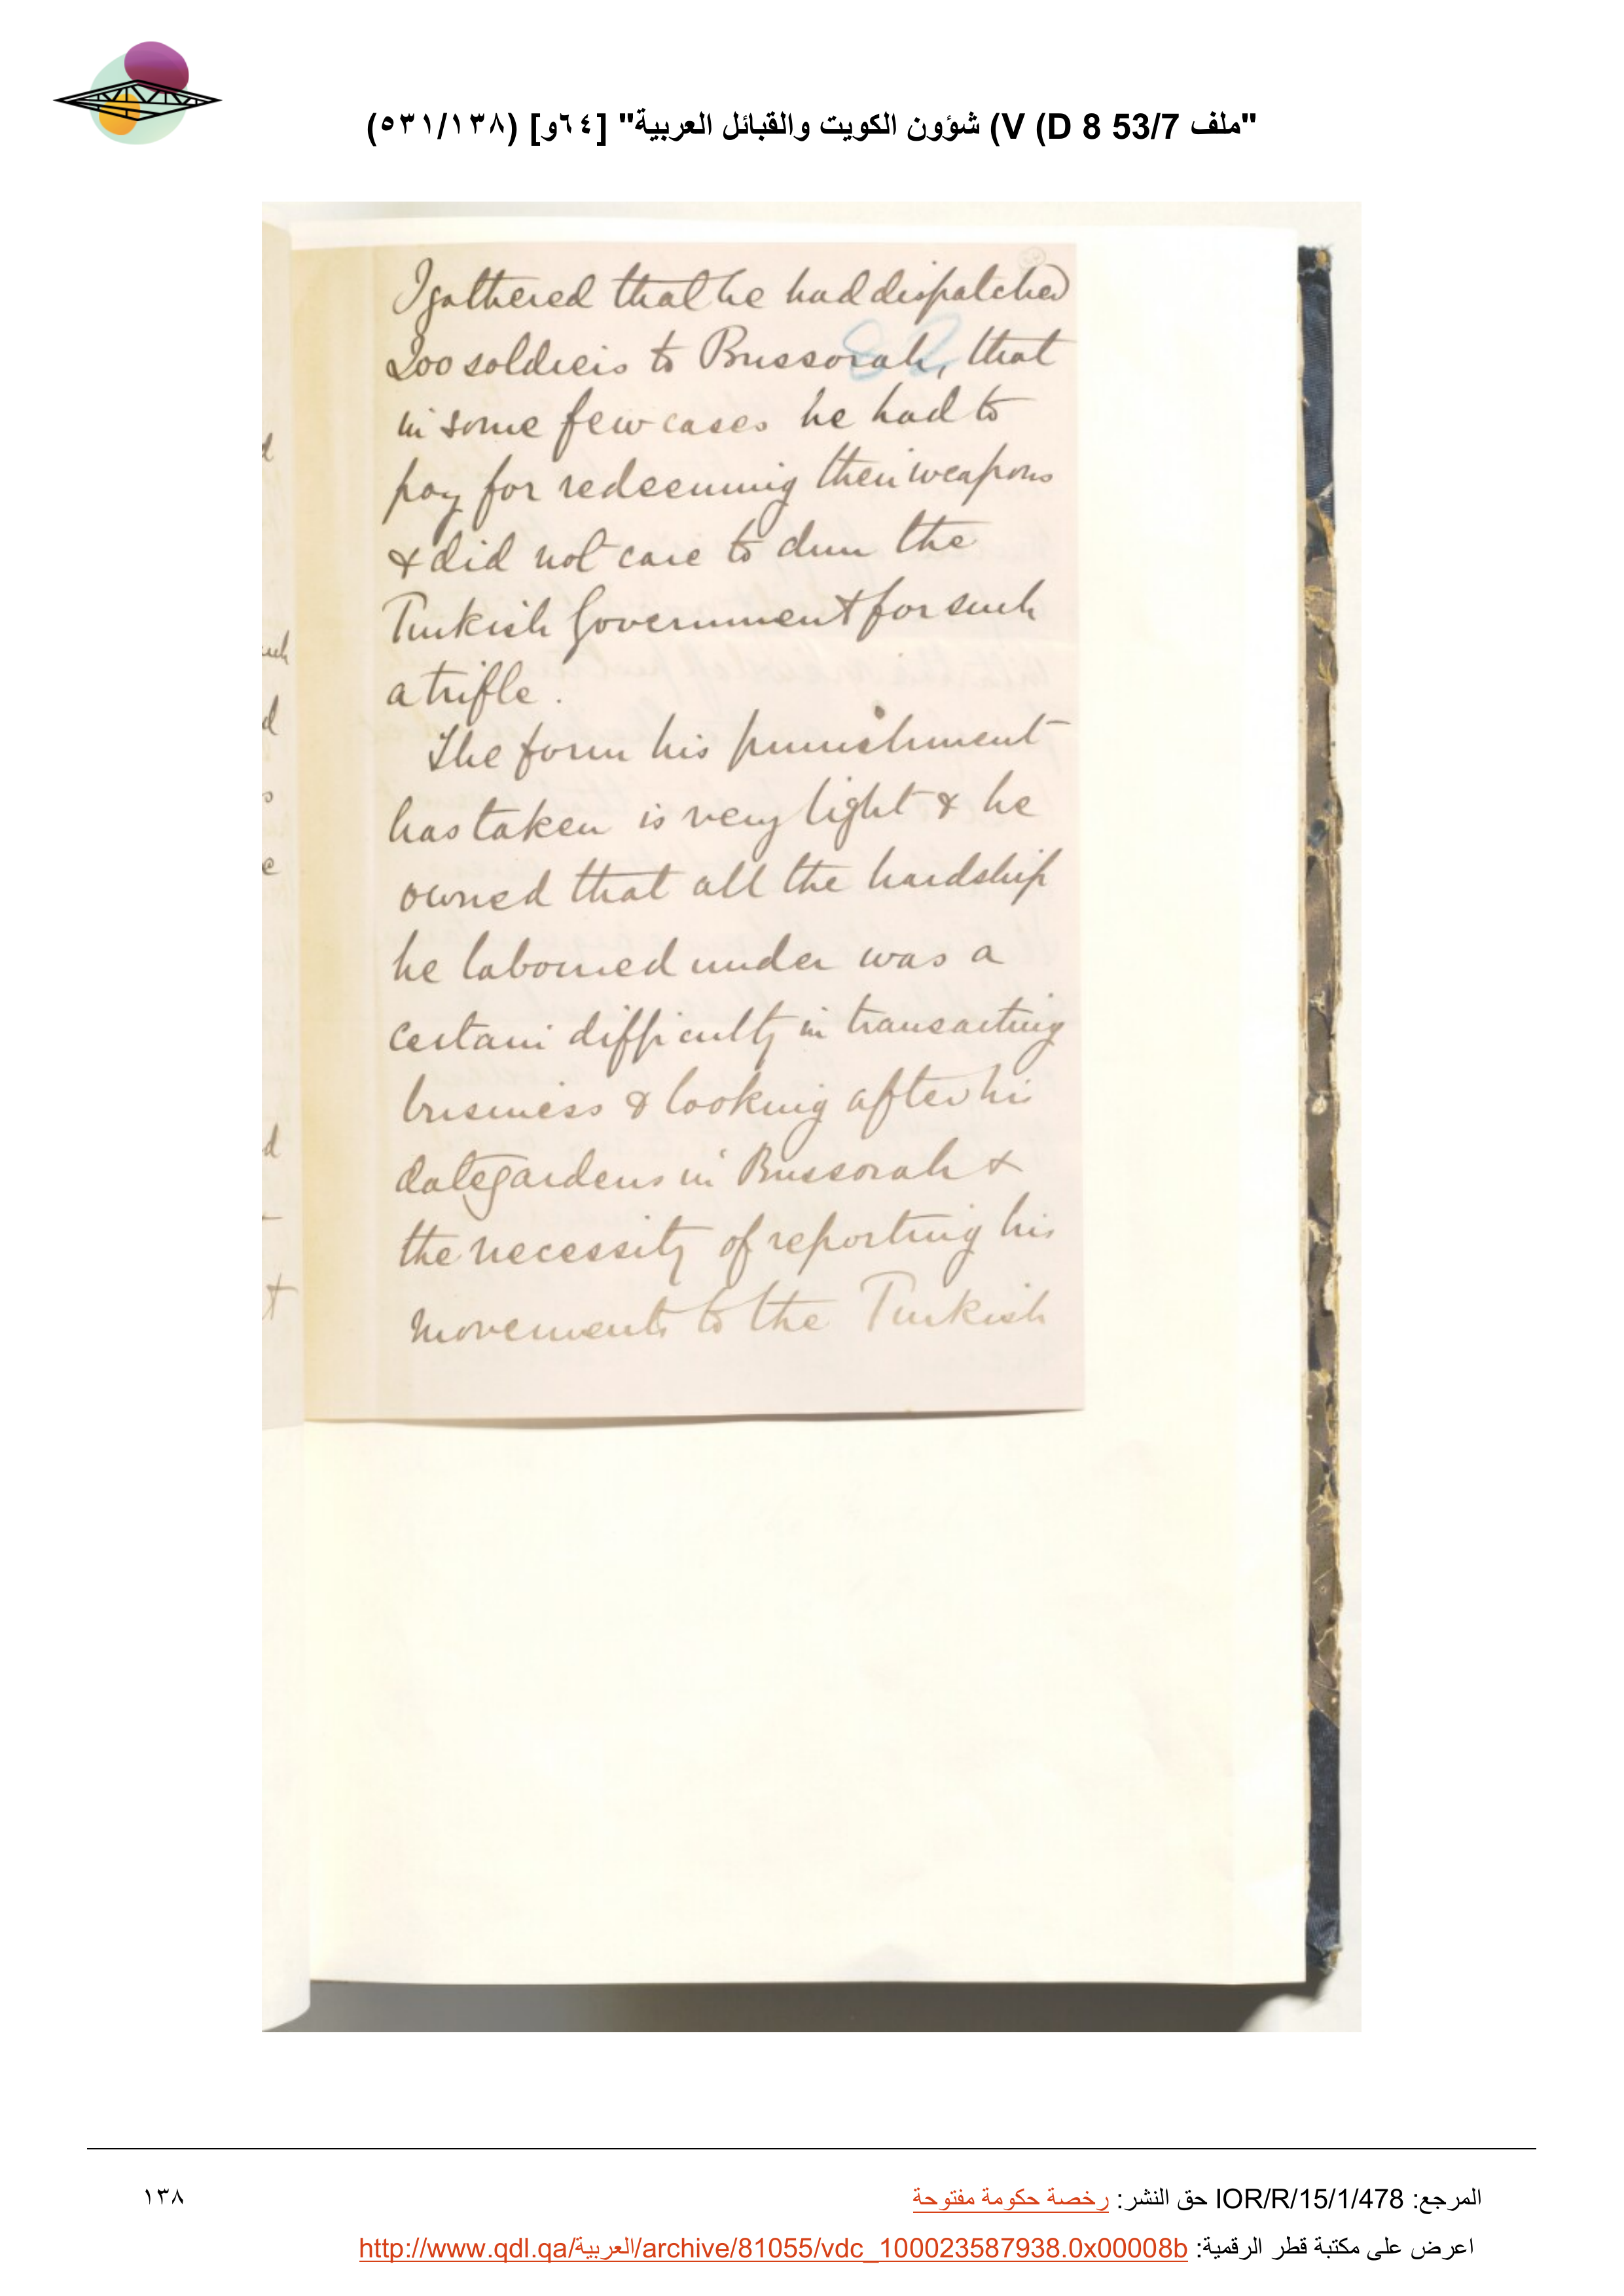 "ملف 53/7 D 8) V) شؤون الكويت والقبائل العربية" [٦٤و] (٥٣١/١٣٨)
I gathered that he had dispatched
200 soldiers to Bussorah, that
in some few cases he had to
pay for redeeming their weapons
& did not care to dun the
Turkish Government for such
a trifle.
The form his punishment
has taken is very light & he
owned that all the hardship
he laboured under was a
certain difficulty in transacting
business & looking after his
dategardens in Bussorah &
the necessity of reporting his
movements to the Turkish
المرجع: IOR/R/15/1/478 حق النشر: رخصة حكومة مفتوحة
١٣٨
اعرض على مكتبة قطر الرقمية: http://www.qdl.qa/العربية/archive/81055/vdc_100023587938.0x00008b